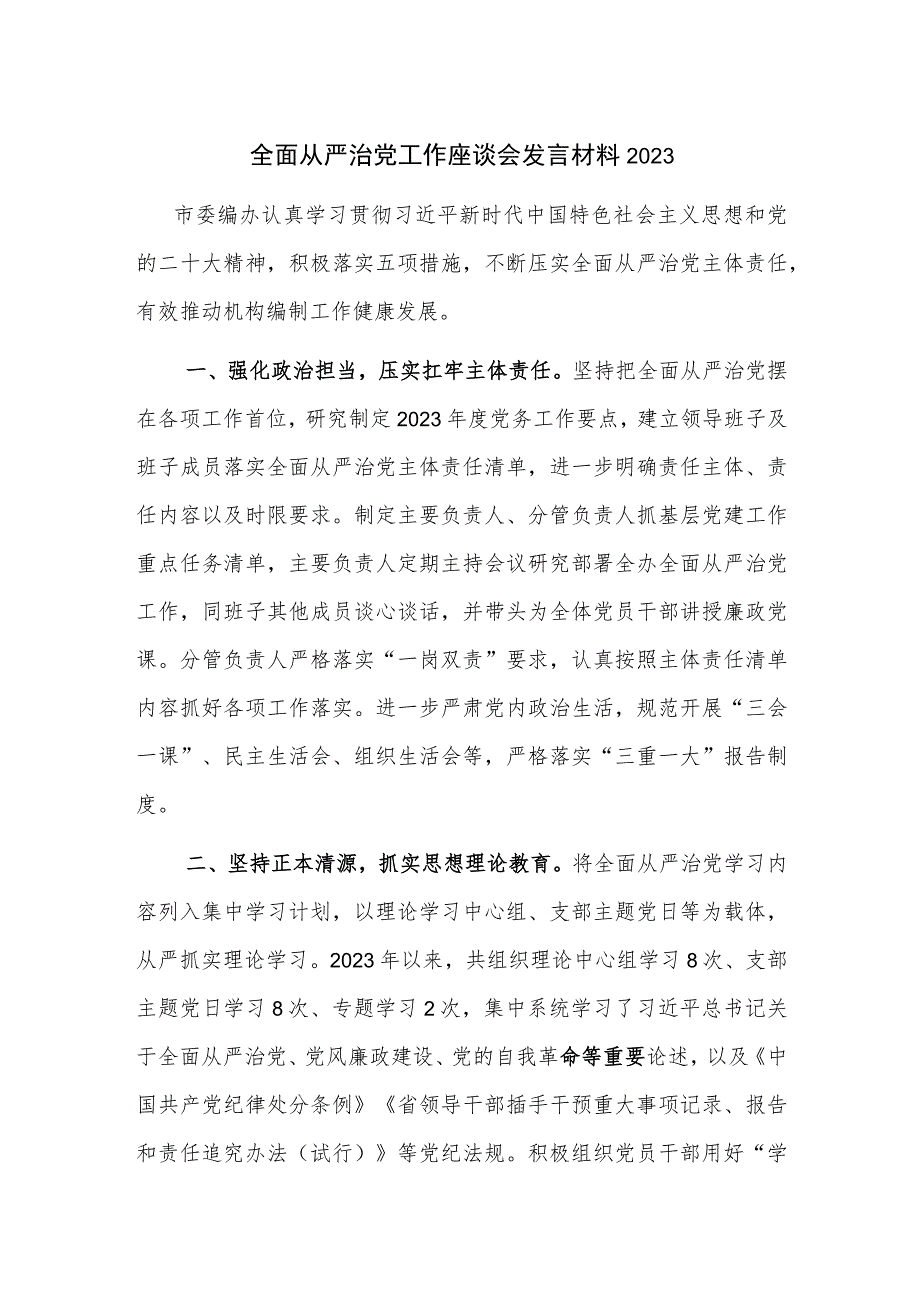 全面从严治党工作座谈会发言材料 2023
市委编办认真学习贯彻习近平新时代中国特色社会主义思想和党
的二十大精神，积极落实五项措施，不断压实全面从严治党主体责任，
有效推动机构编制工作健康发展。
一、强化政治担当，压实扛牢主体责任。坚持把全面从严治党摆
在各项工作首位，研究制定 2023 年度党务工作要点，建立领导班子及
班子成员落实全面从严治党主体责任清单，进一步明确责任主体、责
任内容以及时限要求。制定主要负责人、分管负责人抓基层党建工作
重点任务清单，主要负责人定期主持会议研究部署全办全面从严治党
工作，同班子其他成员谈心谈话，并带头为全体党员干部讲授廉政党
课。分管负责人严格落实“一岗双责”要求，认真按照主体责任清单
内容抓好各项工作落实。进一步严肃党内政治生活，规范开展“三会
一课”、民主生活会、组织生活会等，严格落实“三重一大”报告制
度。
二、坚持正本清源，抓实思想理论教育。将全面从严治党学习内
容列入集中学习计划，以理论学习中心组、支部主题党日等为载体，
从严抓实理论学习。2023 年以来，共组织理论中心组学习 8 次、支部
主题党日学习 8 次、专题学习 2 次，集中系统学习了习近平总书记关
于全面从严治党、党风廉政建设、党的自我革命等重要论述，以及《中
国共产党纪律处分条例》《省领导干部插手干预重大事项记录、报告
和责任追究办法（试行）》等党纪法规。积极组织党员干部用好“学